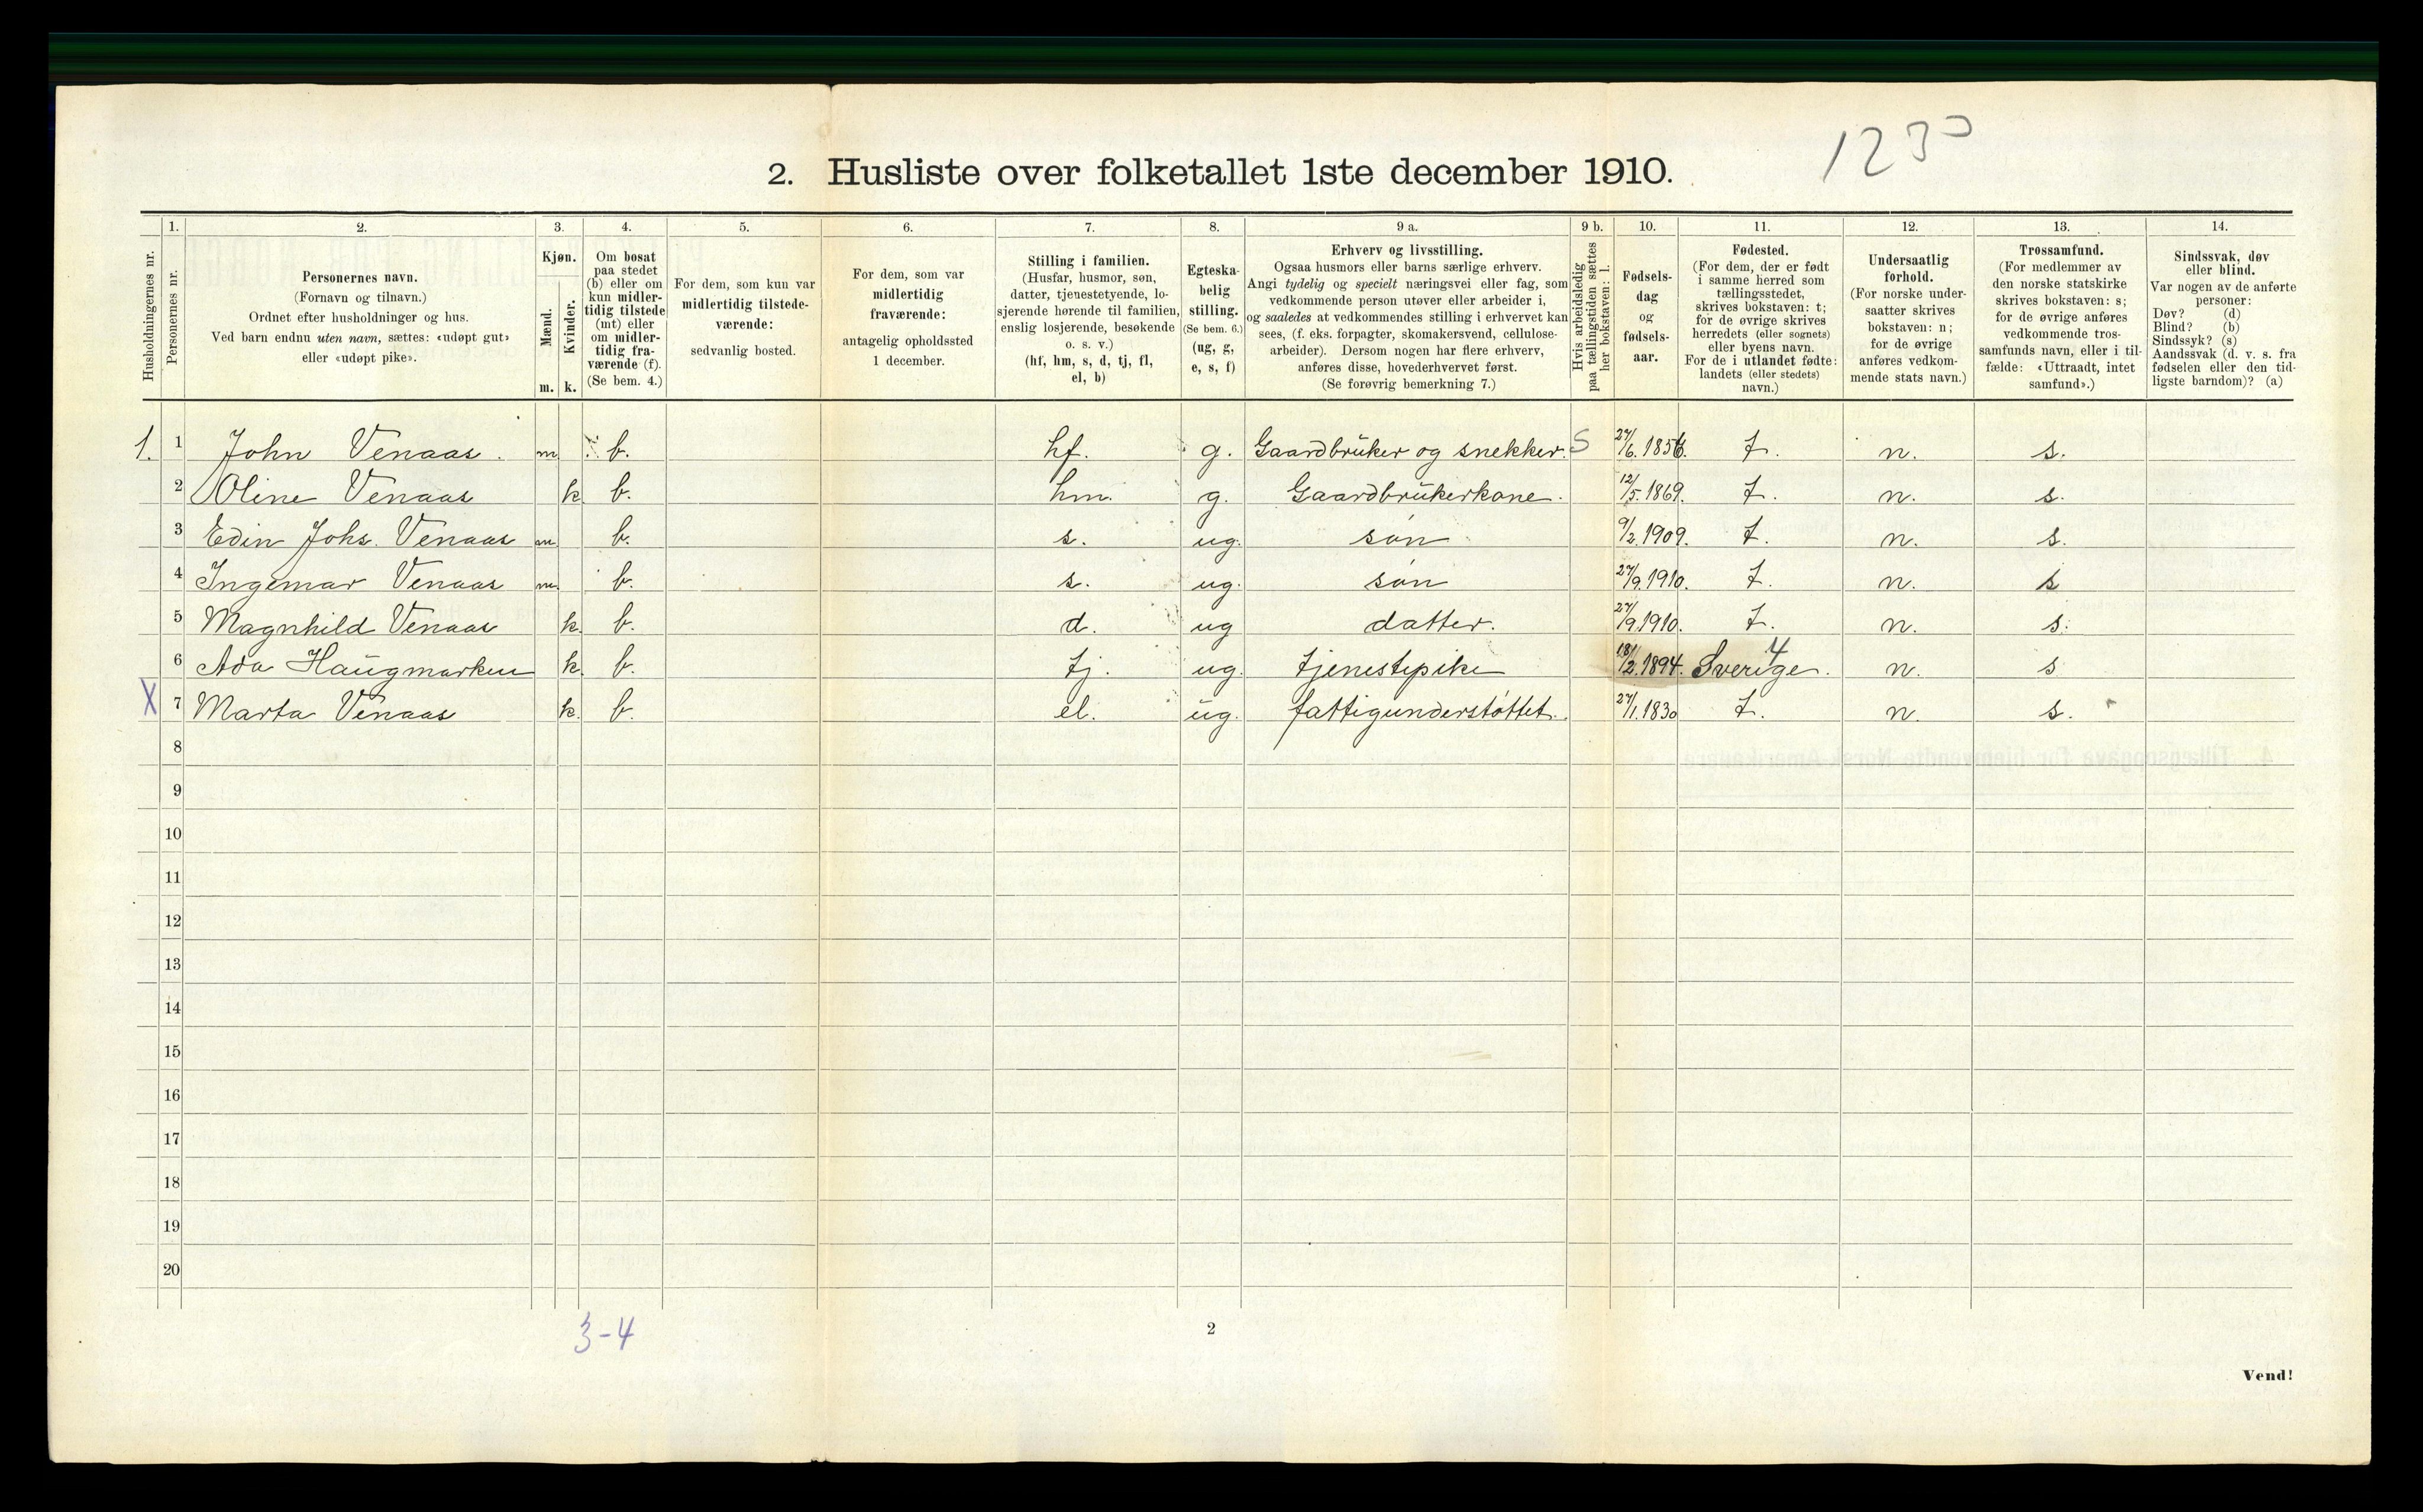 1230
2. Husliste over folketallet 1ste december 1910.
Husholdningernes nr.
1. Personernes nr.
2. Personernes navn.
(Fornavn og tilnavn.)
Ordnet efter husholdninger og hus.
Ved barn endnu uten navn, sættes: «udøpt gut»
eller «udøpt pike».
3. Kjøn.
Mænd. Kvinder.
m. k.
4. Om bosat
paa stedet
(b) eller om
kun midler-
tidig tilstede
(mt) eller
om midler-
tidig fra-
værende (f).
(Se bem. 4.)
5. For dem, som kun var
midlertidig tilstede-
værende:
sedvanlig bosted.
6. For dem, som var
midlertidig
fraværende:
antagelig opholdssted
1 december.
7. Stilling i familien.
(Husfar, husmor, søn,
datter, tjenestetyende, lo-
sjerende hørende til familien,
enslig losjerende, besøkende
o. s. v.)
(hf, hm, s, d, tj, fl,
el, b)
8. Egteska-
belig
stilling.
(Se bem. 6.)
(ug, g,
e, s, f)
9 a. Erhverv og livsstilling.
Ogsaa husmors eller barns særlige erhverv.
Angi tydelig og specielt næringsvei eller fag, som
vedkommende person utøver eller arbeider i,
og saaledes at vedkommendes stilling i erhvervet kan
sees, (f. eks. forpagter, skomakersvend, cellulose-
arbeider). Dersom nogen har flere erhverv,
anføres disse, hovederhvervet først.
(Se forøvrig bemerkning 7.)
9 b. Hvis arbeidsledig
paa tællingstiden sættes
her bokstaven: l.
10. Fødsels-
dag
og
fødsels-
aar.
11. Fødested.
(For dem, der er født
i samme herred som
tællingsstedet,
skrives bokstaven: t;
for de øvrige skrives
herredets (eller sognets)
eller byens navn.
For de i utlandet fødte:
landets (eller stedets)
navn.)
12. Undersaatlig
forhold.
(For norske under-
saatter skrives
bokstaven: n;
for de øvrige
anføres vedkom-
mende stats navn.)
13. Trossamfund.
(For medlemmer av
den norske statskirke
skrives bokstaven: s;
for de øvrige anføres
vedkommende tros-
samfunds navn, eller i til-
fælde: «Uttraadt, intet
samfund».)
14. Sindssvak, døv
eller blind.
Var nogen av de anførte
personer:
Døv? (d)
Blind? (b)
Sindssyk? (s)
Aandssvak (d. v. s. fra
fødselen eller den tid-
ligste barndom)? (a)
1. 1 John Venaas. m b. hf. g. Gaardbruker og snekker. S 27/6. 1856. t. n. s.
2 Oline Venaas k. b. hm. g. Gaardbrukerkone. 12/5. 1869. t. n. s.
3 Edin Johs. Venaas m b. s. ug. søn 9/2. 1909. t. n. s.
4 Ingemar Venaas m. b. s. ug. søn 27/9. 1910. t. n. s
5 Magnhild Venaas k. b. d. ug datter. 27/9. 1910. t. n. s.
6 Ada Haugmarken k. b. tj. ug. tjenestepike 18/2. 1894. Sverige. 4 n. s
X 7 Marta Venaas k. b. el. ug. fattigunderstøttet. 27/1. 1830 t. n. s.
8
9
10
11
12
13
14
15
16
17
18
19
20
3-4
2
Vend!